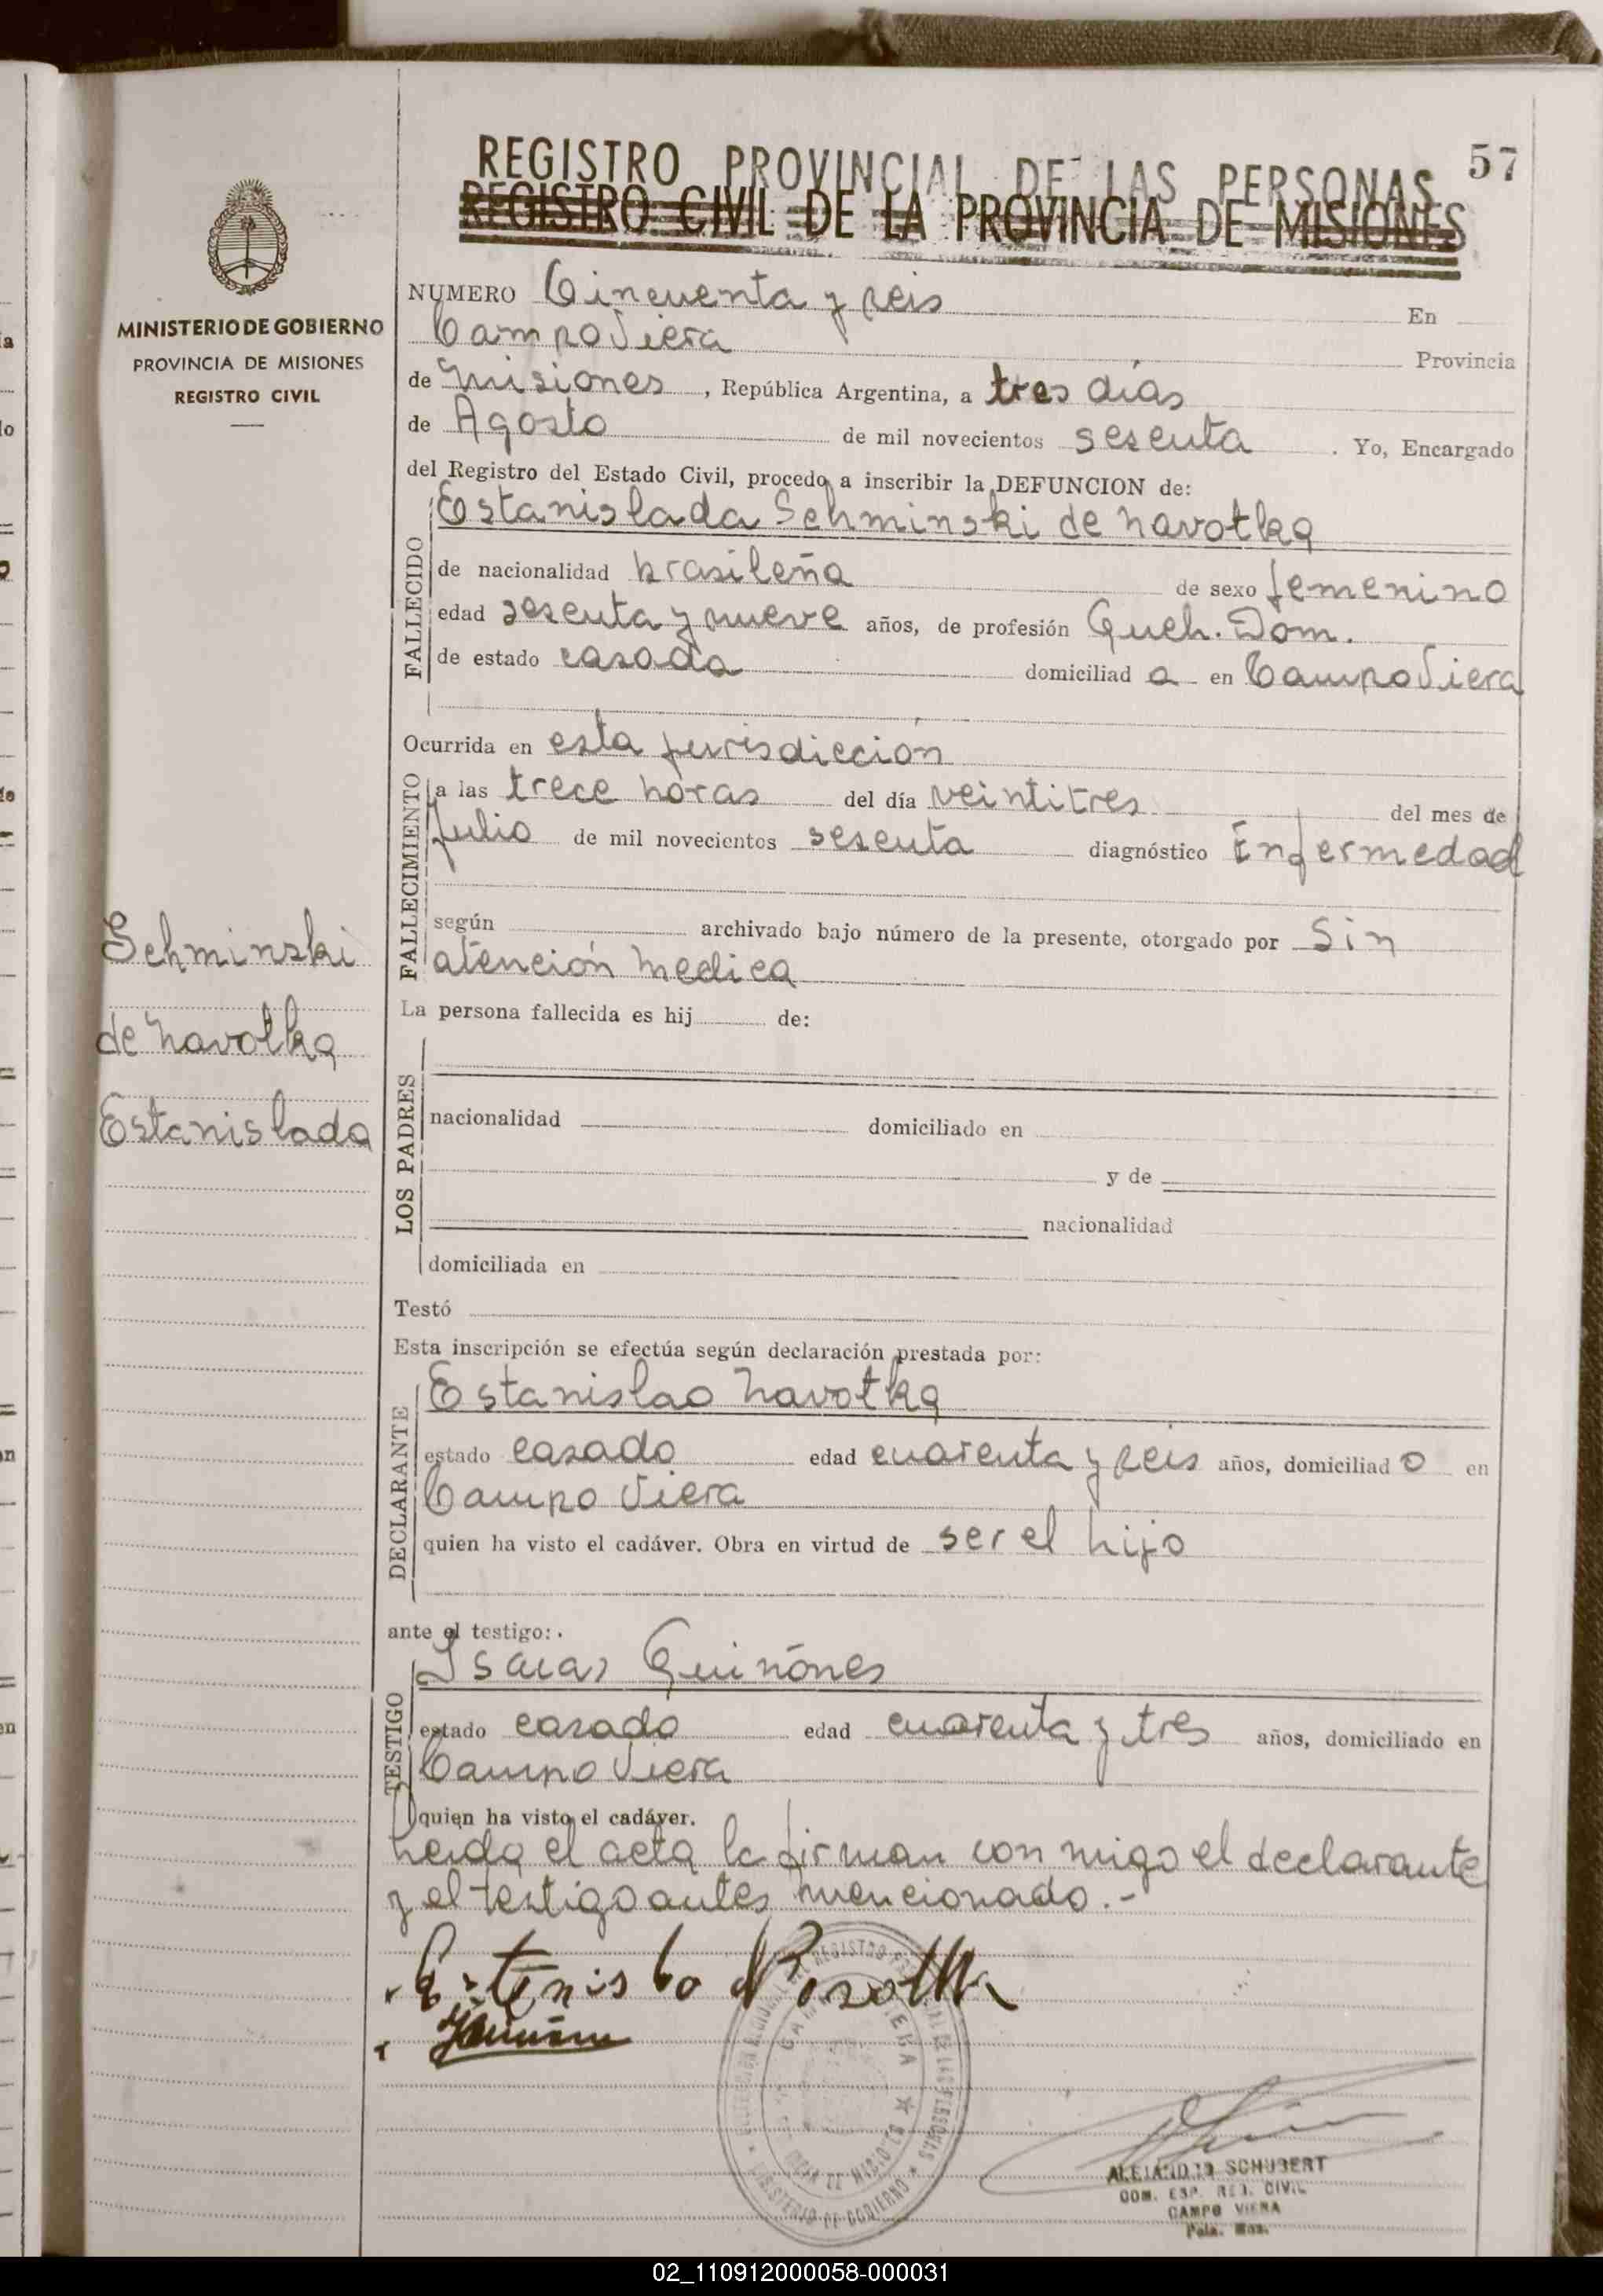 57
REGISTRO PROVINCIAL DE LAS PERSONAS
REGISTRO CIVIL DE LA PROVINCIA DE MISIONES
MINISTERIO DE GOBIERNO
PROVINCIA DE MISIONES
REGISTRO CIVIL
NUMERO Cincuenta y seis En
Campo Viera Provincia
de Misiones, República Argentina, a tres días
de Agosto de mil novecientos sesenta. Yo, Encargado
del Registro del Estado Civil, procedo a inscribir la DEFUNCION de:
FALLECIDO
Estanislada Schminski de Navotka
de nacionalidad brasileña de sexo femenino
edad sesenta y nueve años, de profesión Queh. Dom.
de estado casada domiciliad a en Campo Viera
Ocurrida en esta jurisdicción
FALLECIMIENTO
a las trece horas del día veintitres del mes de
Julio de mil novecientos sesenta diagnóstico Enfermedad
según archivado bajo número de la presente, otorgado por Sin
atención medica
Schminski
de Navotka
Estanislada
La persona fallecida es hij de:
LOS PADRES
nacionalidad domiciliado en
y de
nacionalidad
domiciliada en
Testó
Esta inscripción se efectúa según declaración prestada por:
DECLARANTE
Estanislao Navotka
estado casado edad cuarenta y seis años, domiciliad o en
Campo Viera
quien ha visto el cadáver. Obra en virtud de ser el hijo
ante el testigo:
TESTIGO
Isaias Quiñones
estado casado edad cuarenta y tres años, domiciliado en
Campo Viera
quien ha visto el cadáver.
Leida el acta la firman con migo el declarante
y el testigo antes mencionado.-
CAMPO VIERA
MINISTERIO DE GOBIERNO
ALEJANDRO SCHUBERT
COM. ESP. REG. CIVIL
CAMPO VIERA
Pcia. Mns.
02_110912000058-000031